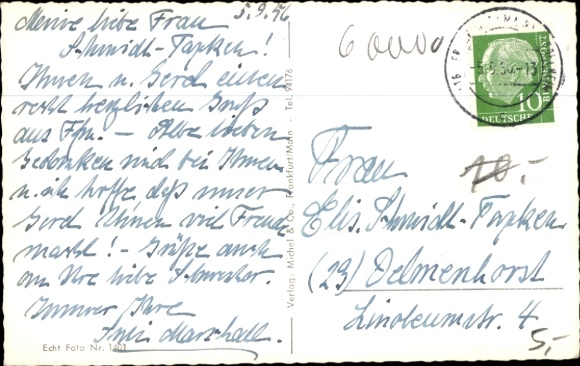 5.9.56
Meine liebe Frau
Schmidt-Tapken!
Ihnen u. Gerd einen
recht herzlichen Gruß
aus Ffm. – Alle lieben
Gedanken sind bei Ihnen
u. ich hoffe, daß unser
Gerd Ihnen viel Freude
macht! – Grüße auch
an Ihre liebe Schwester.
Immer Ihre
Marshall.
Echt Foto Nr. 1401
Verlag: Michel & Co., Frankfurt/Main - Tel. 94176
60000
10
DEUTSCHE
BUNDESPOST
10.-
Frau
Elis. Schmidt-Tapken
(23) Delmenhorst
Linoleumstr. 4
5,-